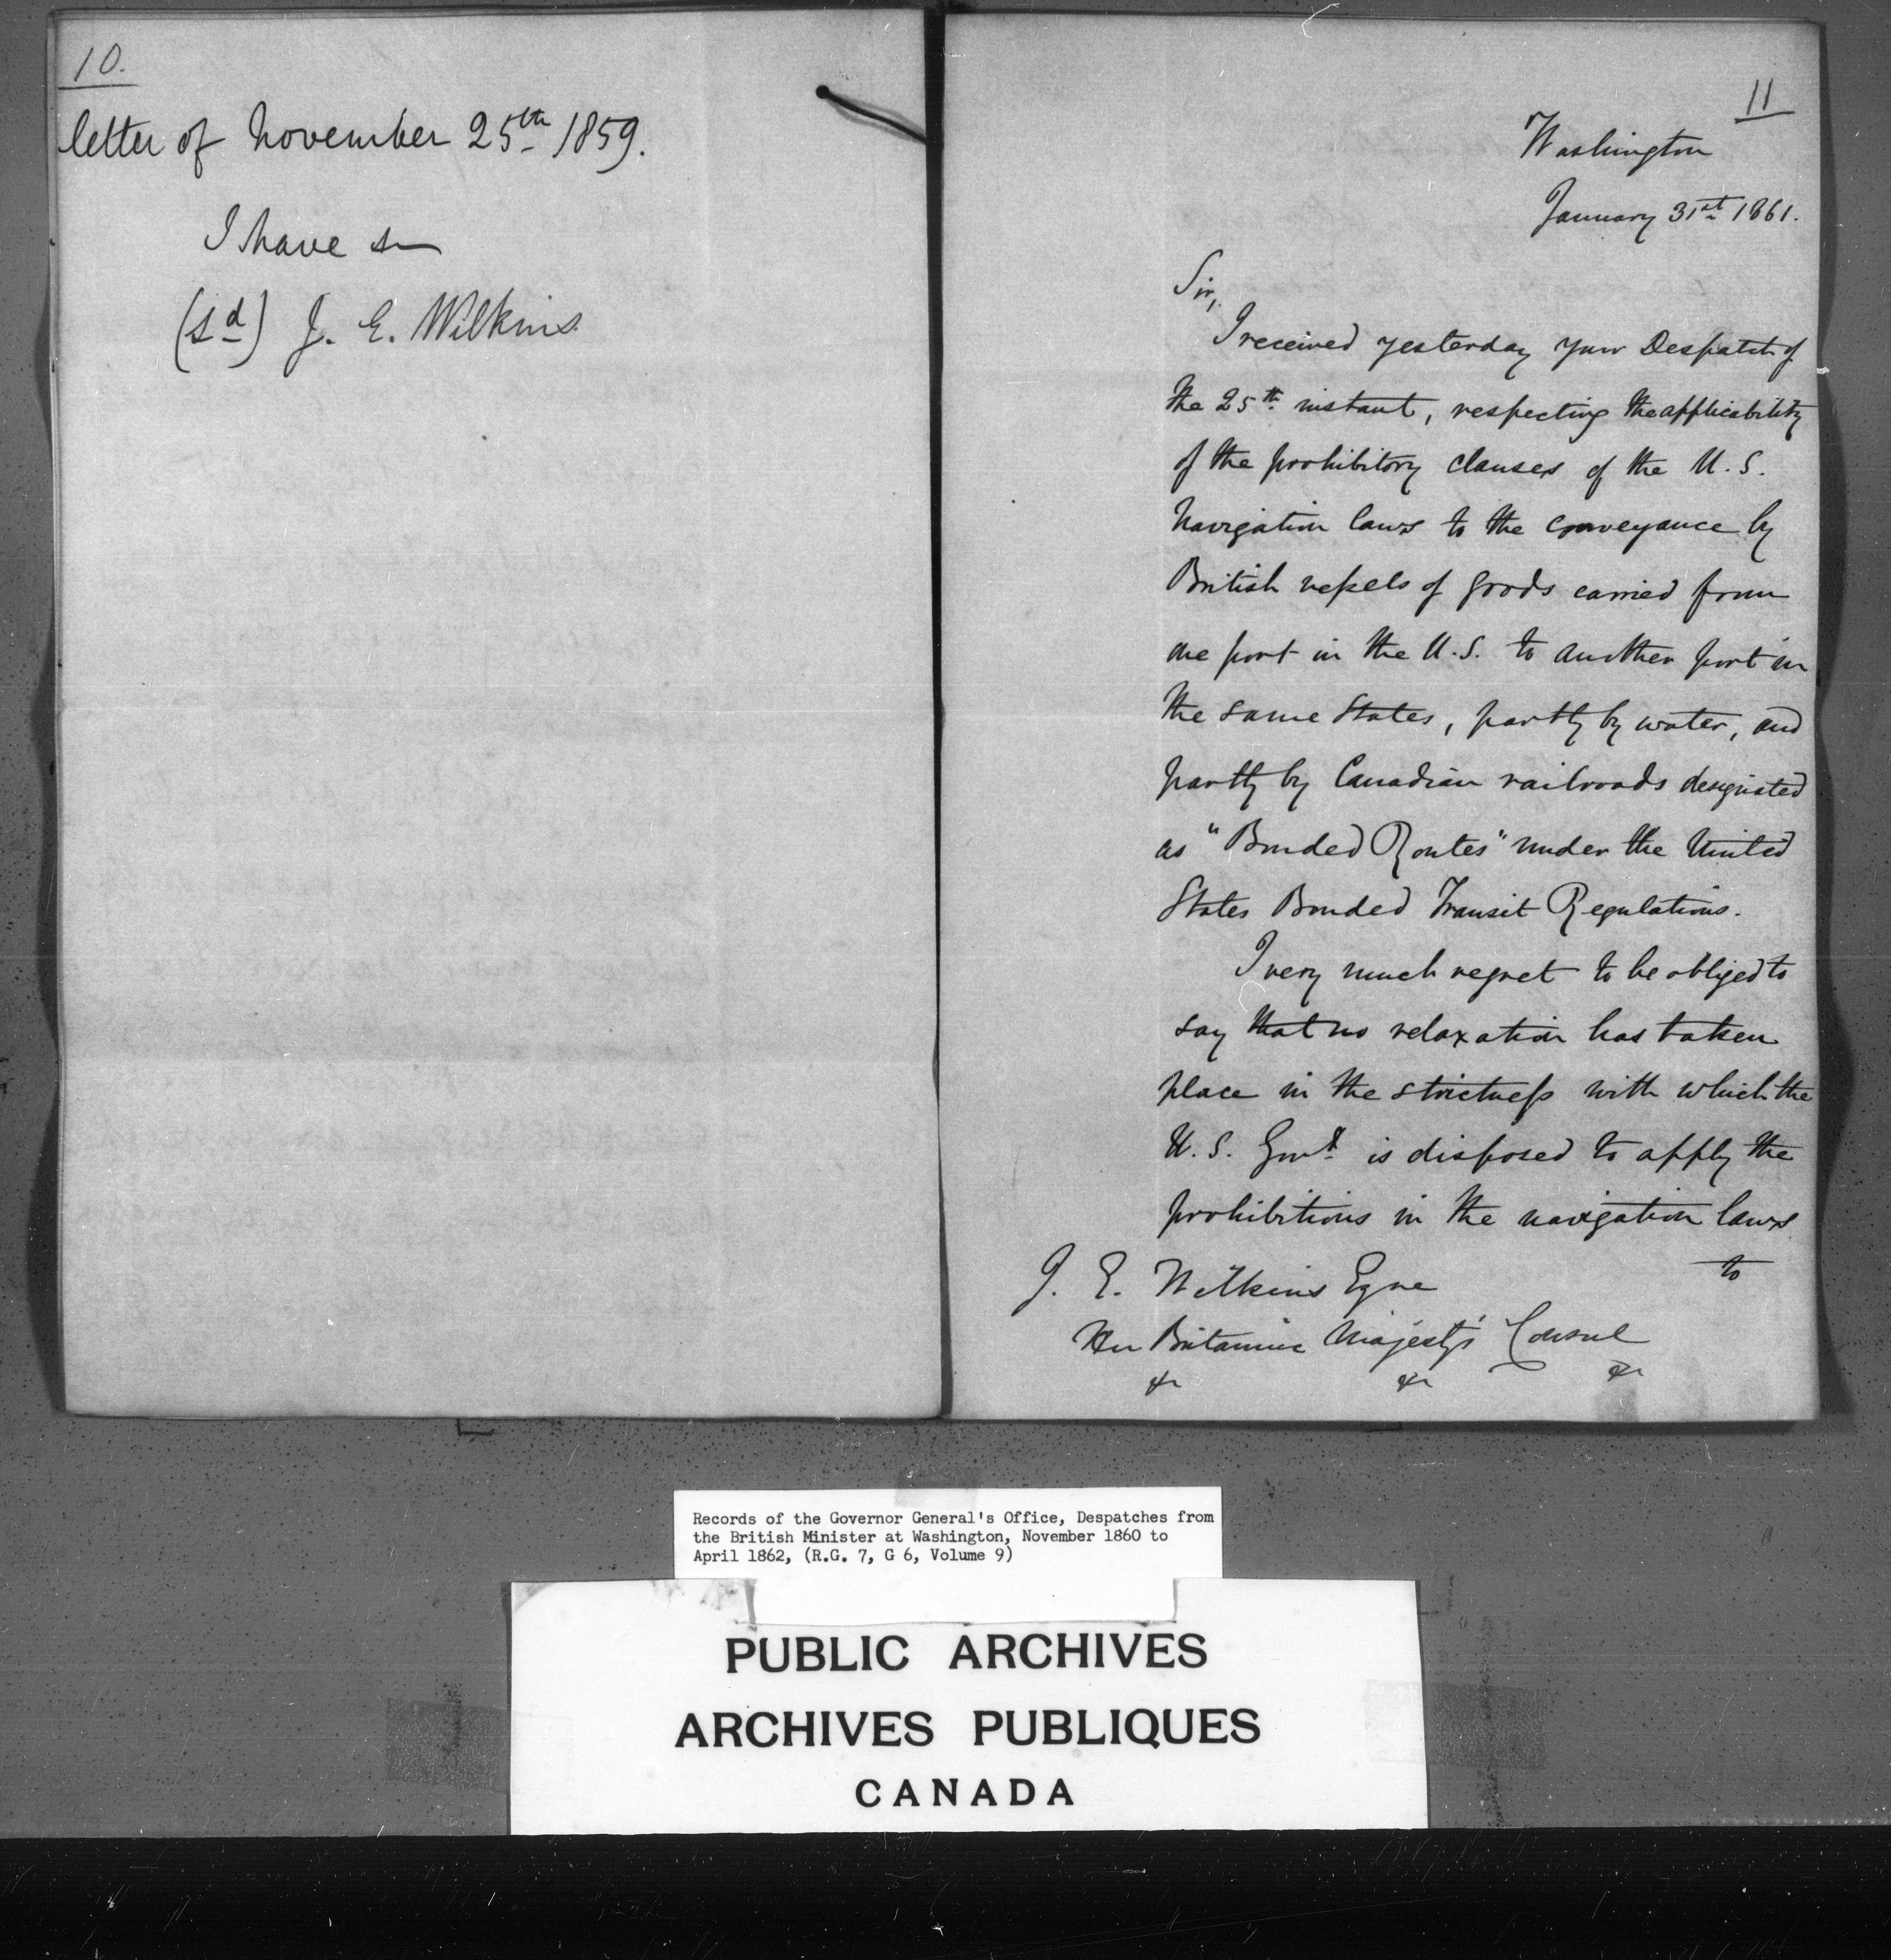 10.
letter of November 25th 1859.
I have &c
(Sd) J. E. Wilkins
11
Washington
January 31st 1861.
Sir,
I received yesterday your Despatch of
the 25th instant, respecting the applicability
of the prohibitory clauses of the U.S.
Navigation laws to the conveyance by
British vessels of goods carried from
one port in the U.S. to another port in
the same States, partly by water, and
partly by Canadian railroads designated
as "Bonded Routes" under the United
States Bonded Transit Regulations.
I very much regret to be obliged to
say that no relaxation has taken
place in the strictness with which the
U.S. Govt. is disposed to apply the
prohibitions in the navigation laws
to
J. E. Wilkins Eqre
Her Britannic Majesty's Consul
&c &c &c
Records of the Governor General's Office, Despatches from
the British Minister at Washington, November 1860 to
April 1862, (R.G. 7, G 6, Volume 9)
PUBLIC ARCHIVES
ARCHIVES PUBLIQUES
CANADA